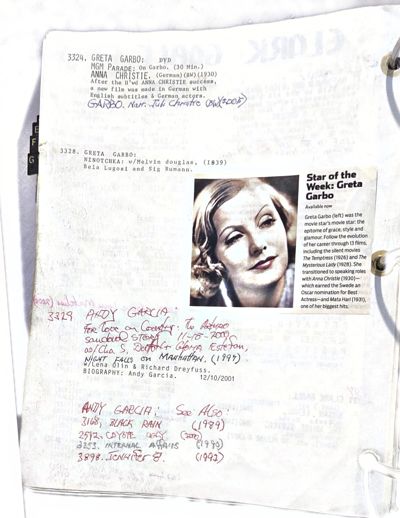 3324. GRETA GARBO: DVD
MGM PARADE: On Garbo. (30 Min.)
ANNA CHRISTIE. (German)(BW)(1930)
After the H'wd ANNA CHRISTIE success,
a new film was made in German with
English subtitles & German actors.
GARBO. Narr. Julie Christie (2005)
3328. GRETA GARBO:
NINOTCHKA: w/Melvin douglas, (1839)
Bela Lugosi and Sig Rumann.
Star of the
Week: Greta
Garbo
Available now
Greta Garbo (left) was the
movie star's movie star: the
epitome of grace, style and
glamour. Follow the evolution
of her career through 13 films,
including the silent movies
The Temptress (1926) and The
Mysterious Lady (1928). She
transitioned to speaking roles
with Anna Christie (1930)—
which earned the Swede an
Oscar nomination for Best
Actress—and Mata Hari (1931),
one of her biggest hits.
3329 ANDY GARCIA:
For Love or Country: The Arturo
Sandoval STORY. 11-18-2000
w/ Gloria Estefan,
NIGHT FALLS ON MANHATTAN. (1997)
w/Lena Olin & Richard Dreyfuss.
BIOGRAPHY: Andy Garcia. 12/10/2001
ANDY GARCIA: See Also:
3168, BLACK RAIN (1989)
2592, COYOTE UGLY (2000)
3253. INTERNAL AFFAIRS (1990)
3898. JENNIFER 8. (1992)